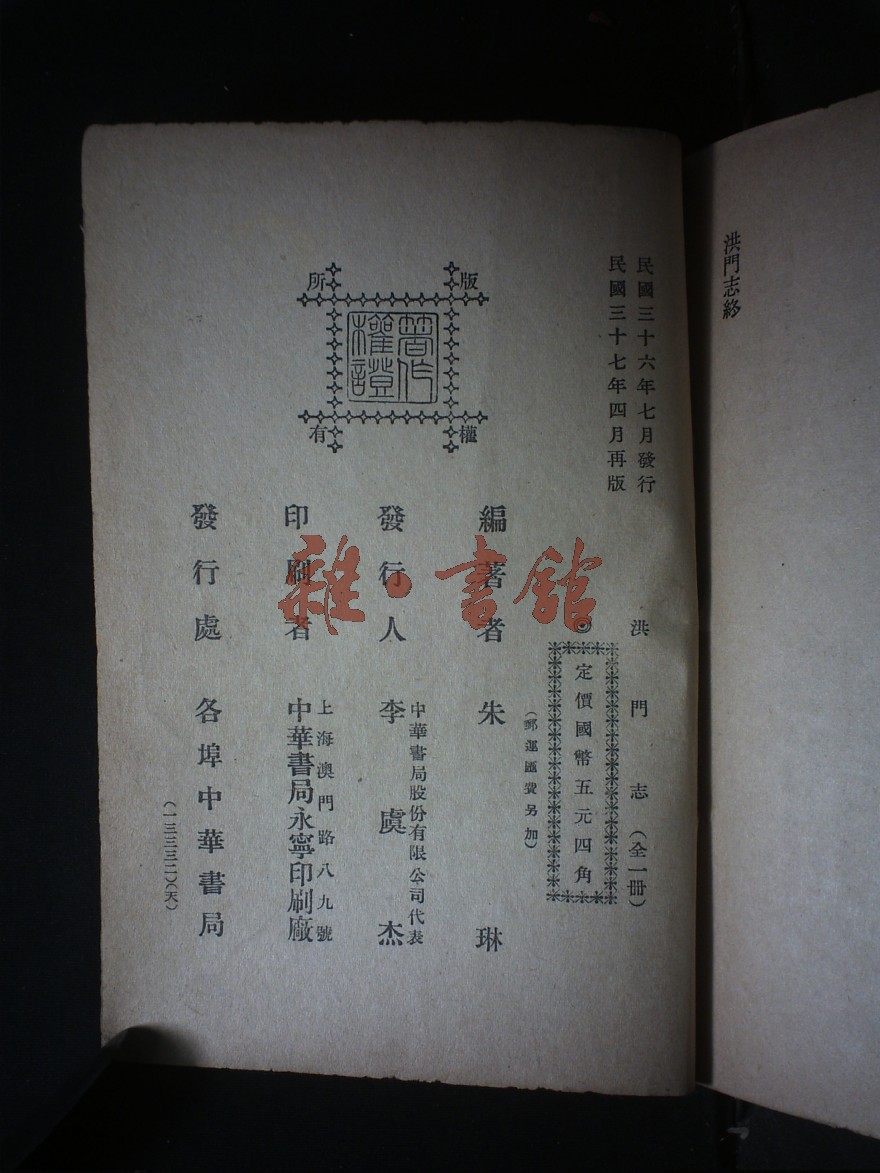 洪門志終
民國三十六年七月發行
民國三十七年四月再版
洪門志(全一冊)
◎定價國幣五元四角
(郵運匯費另加)
版權所有
著作權證
編著者 朱琳
發行人 中華書局股份有限公司代表
李虞杰
印刷者 上海澳門路八九號
中華書局永寧印刷廠
發行處 各埠中華書局
(一三三三二)(天)
雜·書館